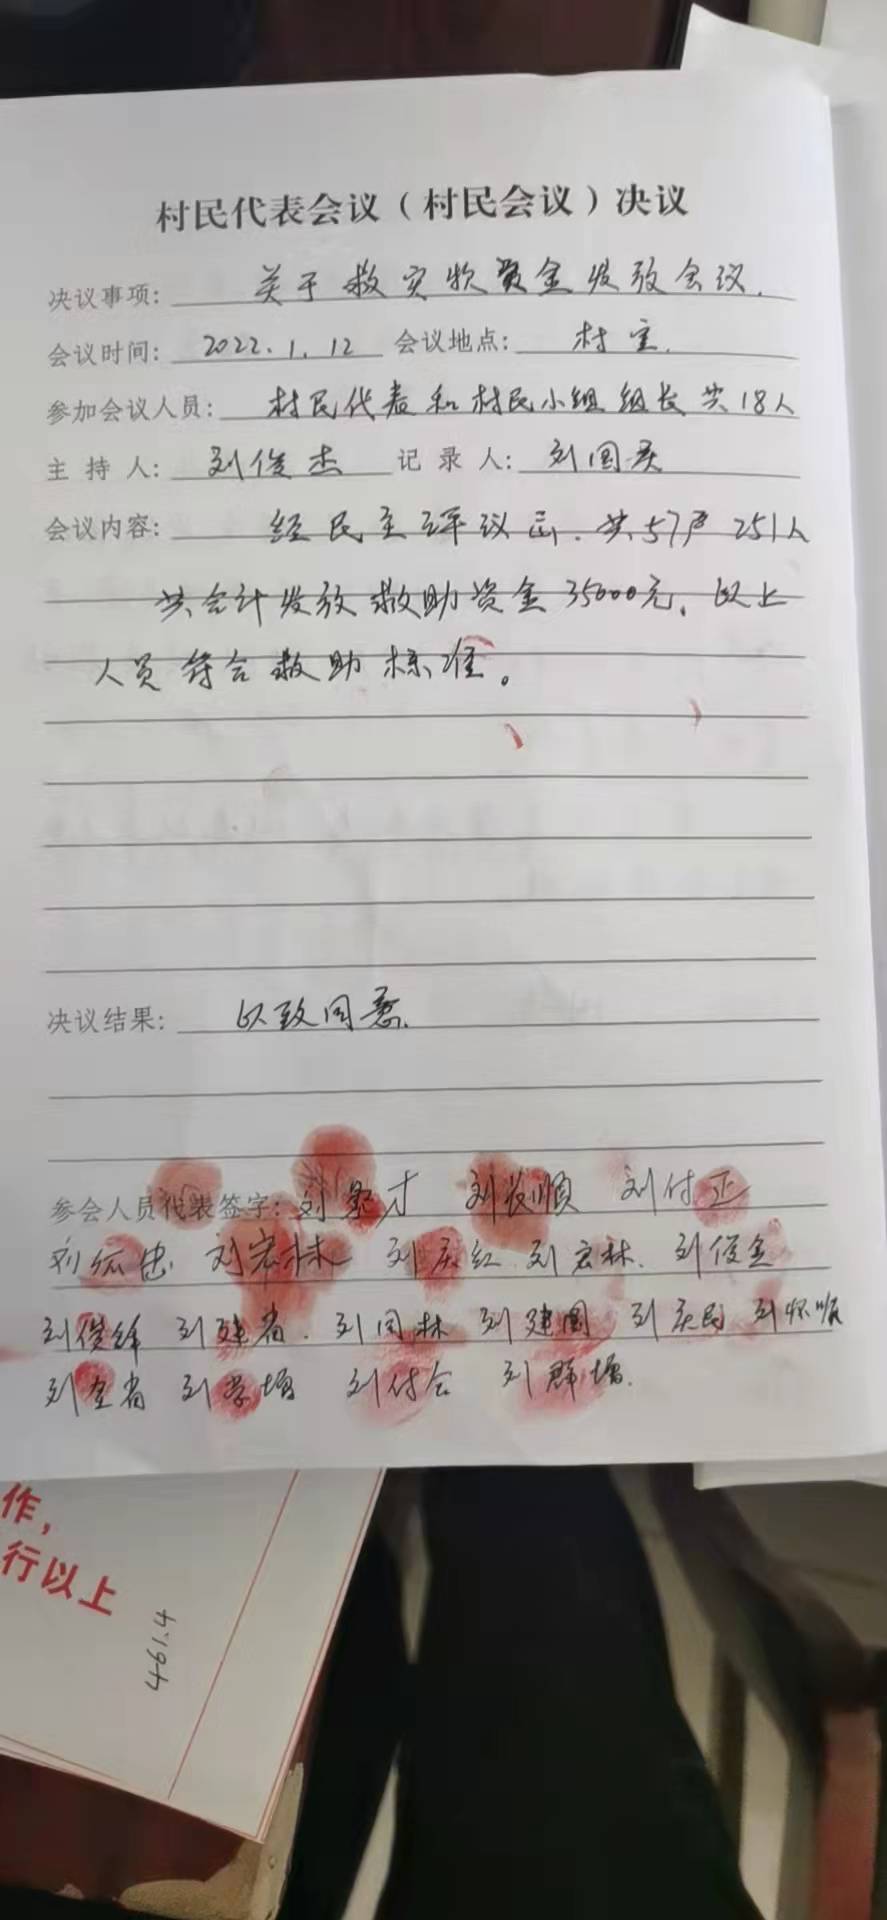 村民代表会议（村民会议）决议
决议事项: 关于救灾物资金发放会议.
会议时间: 2022.1.12 会议地点: 村室.
参加会议人员: 村民代表和村民小组组长共18人
主持人: 刘俊杰 记录人: 刘国庆
会议内容: 经民主评议后.共57户251人
共合计发放救助资金35000元.以上
人员符合救助标准。
决议结果: 以致同意.
参会人员代表签字: 刘才 刘长顺 刘付正
刘忠 刘宏林 刘庆红 刘宏林. 刘俊金
刘俊锋 刘建省. 刘同林 刘建国 刘庆民 刘怀顺
刘奎省 刘学增 刘付合 刘群增.
作,
行以上
461.4